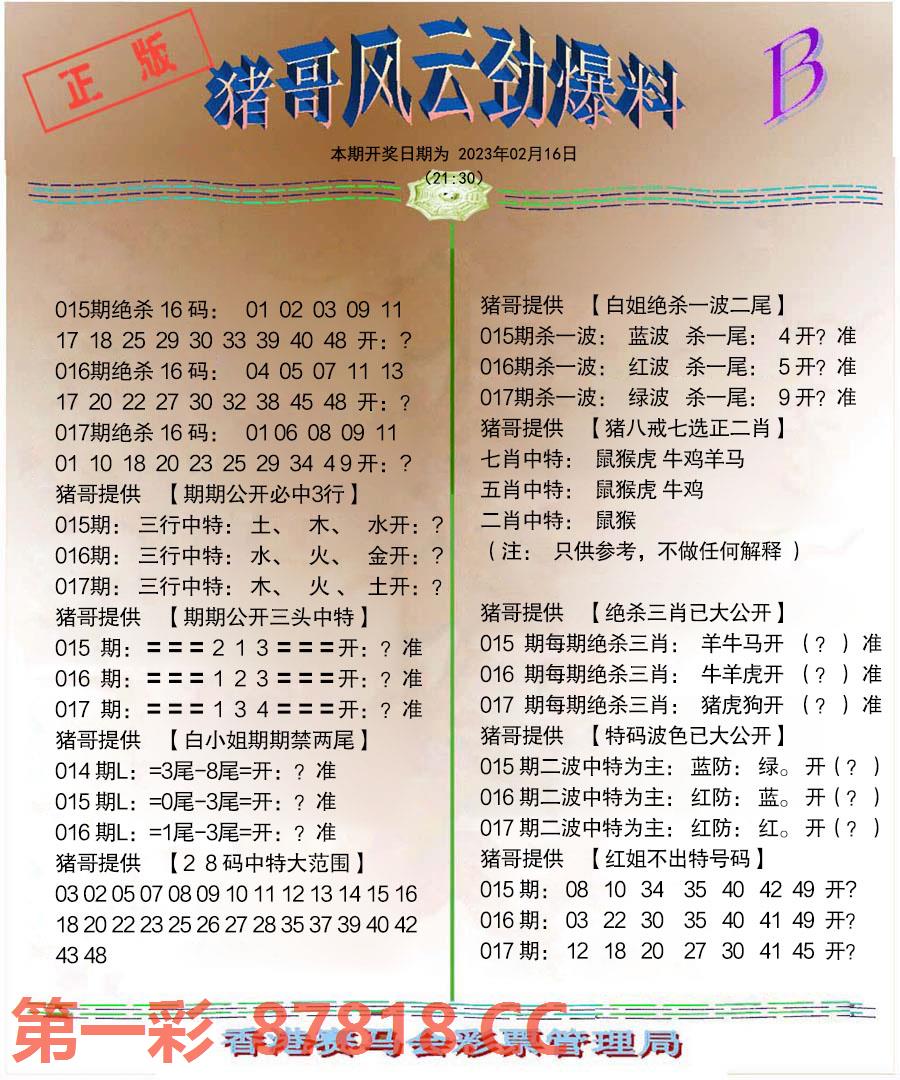 正版
猪哥风云劲爆料
B
本期开奖日期为 2023年02月16日
(21:30)
015期绝杀 16 码： 01 02 03 09 11
17 18 25 29 30 33 39 40 48 开：?
016期绝杀 16 码： 04 05 07 11 13
17 20 22 27 30 32 38 45 48 开：?
017期绝杀 16 码： 01 06 08 09 11
01 10 18 20 23 25 29 34 4 9 开：?
猪哥提供 【期期公开必中3行】
015期： 三行中特：土、 木、 水开：?
016期： 三行中特：水、 火、 金开：?
017期： 三行中特：木、 火 、 土开：?
猪哥提供 【期期公开三头中特】
015 期：＝＝＝ 2 1 3 ＝＝＝开：? 准
016 期：＝＝＝ 1 2 3 ＝＝＝开：? 准
017 期：＝＝＝ 1 3 4 ＝＝＝开：? 准
猪哥提供 【白小姐期期禁两尾】
014 期L：=3尾–8尾=开：? 准
015 期L：=0尾–3尾=开：? 准
016 期L：=1尾–3尾=开：? 准
猪哥提供 【2 8 码中特大范围】
03 02 05 07 08 09 10 11 12 13 14 15 16
18 20 22 23 25 26 27 28 35 37 39 40 42
43 48
猪哥提供 【白姐绝杀一波二尾】
015期杀一波： 蓝波 杀一尾： 4 开? 准
016期杀一波： 红波 杀一尾： 5 开? 准
017期杀一波： 绿波 杀一尾： 9 开? 准
猪哥提供 【猪八戒七选正二肖】
七肖中特： 鼠猴虎 牛鸡羊马
五肖中特： 鼠猴虎 牛鸡
二肖中特： 鼠猴
（注： 只供参考，不做任何解释 ）
猪哥提供 【绝杀三肖已大公开】
015 期每期绝杀三肖： 羊牛马开 （？）准
016 期每期绝杀三肖： 牛羊虎开 （？）准
017 期每期绝杀三肖： 猪虎狗开 （？）准
猪哥提供 【特码波色已大公开】
015 期二波中特为主： 蓝防： 绿。 开（? ）
016 期二波中特为主： 红防： 蓝。 开（? ）
017 期二波中特为主： 红防： 红。 开（? ）
猪哥提供 【红姐不出特号码】
015 期： 08 10 34 35 40 42 49 开?
016 期： 03 22 30 35 40 41 49 开?
017 期： 12 18 20 27 30 41 45 开?
第一彩 87818.CC
香港赛马会彩票管理局